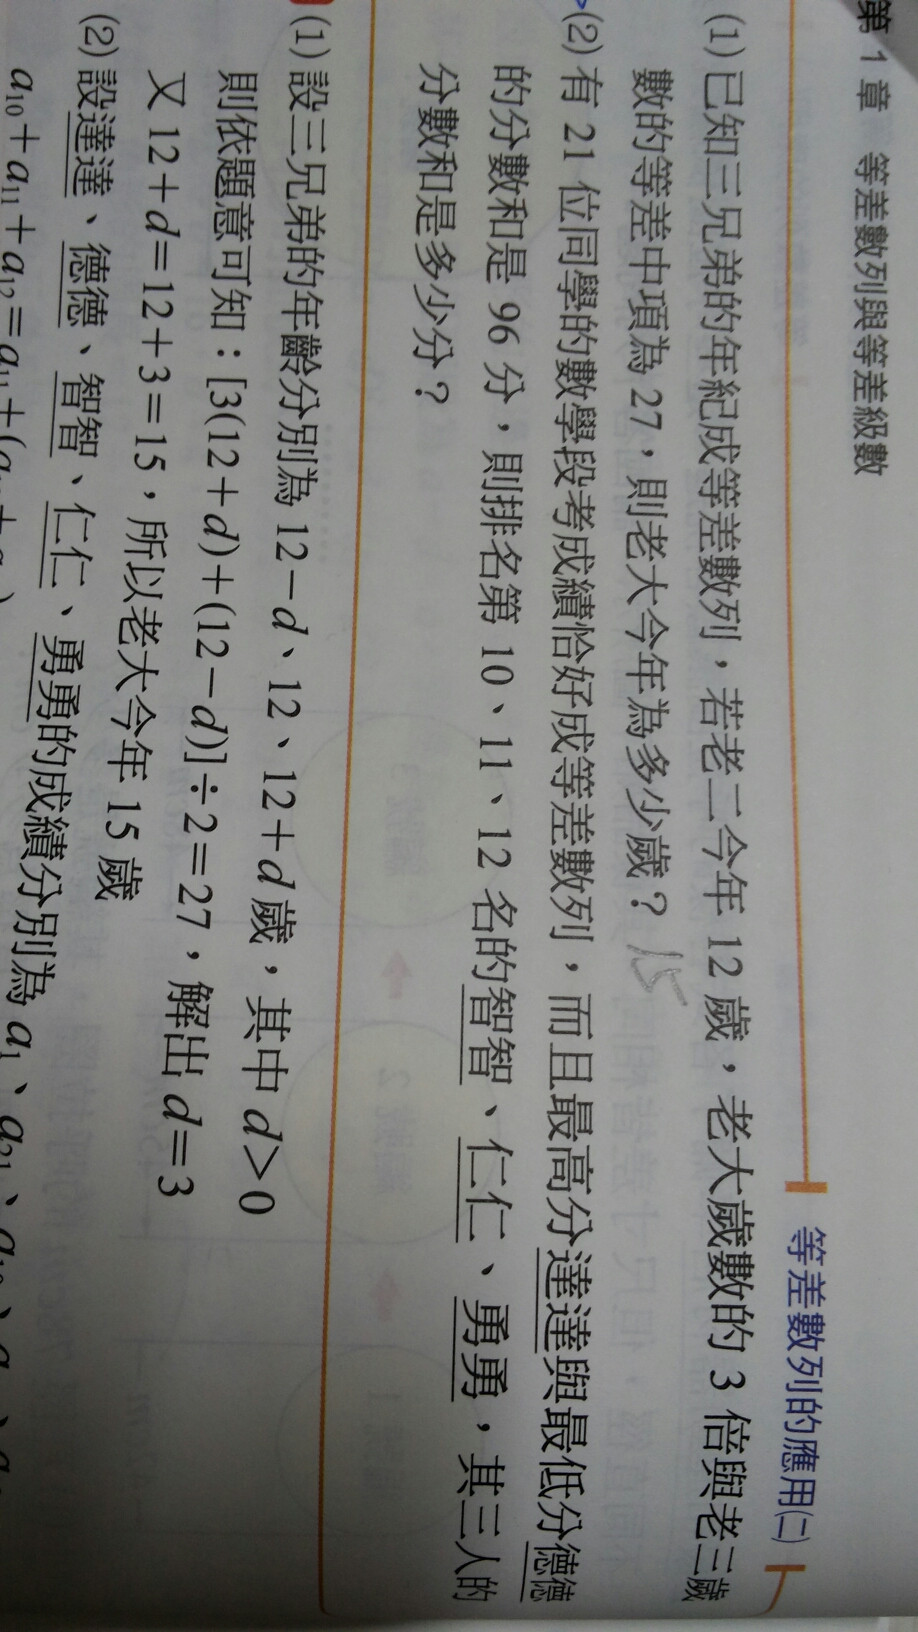 第 1 章 等差數列與等差級數
等差數列的應用(二)
(1) 已知三兄弟的年紀成等差數列，若老二今年 12 歲，老大歲數的 3 倍與老三歲
數的等差中項為 27，則老大今年為多少歲？ 15
(2) 有 21 位同學的數學段考成績恰好成等差數列，而且最高分達達與最低分德德
的分數和是 96 分，則排名第 10、11、12 名的智智、仁仁、勇勇，其三人的
分數和是多少分？
(1) 設三兄弟的年齡分別為 12－d、12、12＋d 歲，其中 d＞0
則依題意可知：[3(12＋d)＋(12－d)]÷2＝27，解出 d＝3
又 12＋d＝12＋3＝15，所以老大今年 15 歲
(2) 設達達、德德、智智、仁仁、勇勇的成績分別為 a₁、a₂₁、a₁₀、
a₁₀＋a₁₁＋a₁₂＝a₁₁＋(